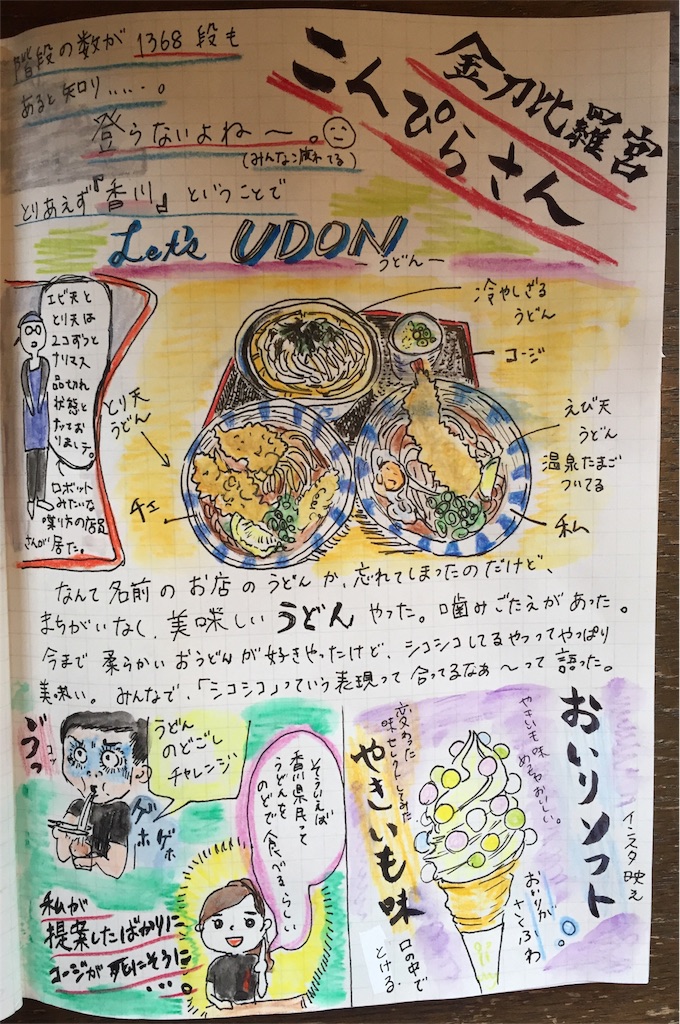 階段の数が 1368段も
あると知り……。
登らないよね〜。
(みんな疲れてる)
とりあえず『香川』ということで
金刀比羅宮
こんぴらさん
Let's UDON
－うどん－
エビ天と
とり天は
2コずつと
ナリマス
品切れ
状態と
なってお
りまシテ。
ロボット
みたいな
喋り方の店員
さんが居た。
とり天
うどん
チエ
冷やしざる
うどん
コージ
えび天
うどん
温泉たまご
ついてる
私
なんて名前のお店のうどんか、忘れてしまったのだけど、
まちがいなく、美味しいうどんやった。噛みごたえがあった。
今まで柔らかいおうどんが好きやったけど、シコシコしてるやつってやっぱり
美味い。みんなで、「シコシコ」っていう表現って合ってるなぁ〜って語った。
うどん
のどごし
チャレンジ
ゲホ
ゲホ
そういえば
香川県民って
うどんを
のどで食べるらしい
私が
提案したばかりに
コージが死にそうに
…。
おいりソフト
インスタ映え
やきいも味
めちゃおいしい。
変わった
味セレクトしてみた
やきいも味
おいりが
さくふわ
口の中で
とける。